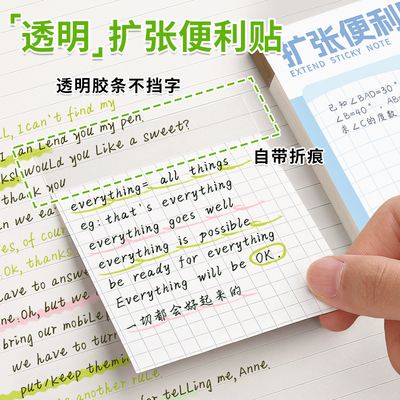 透明 扩张便利贴
透明胶条不挡字
自带折痕
扩张便利
EXTEND STICKY NOTE
已知∠BAD=30°
∠B=40°, AB
求∠C的度数
I can't find my
I can Lend you my pen.
Would you Like a sweet?
thank you
everything= all things
eg: that's everything
everything goes well
everything is possible
be ready for everything
Everything will be OK.
一切都会好起来的
n we eat
es, of cour
OK, thanks
have to answ
ne. Oh, but we
bring our mobile
we have to turn
put/keep them in
another rule
for telling me, Anne.